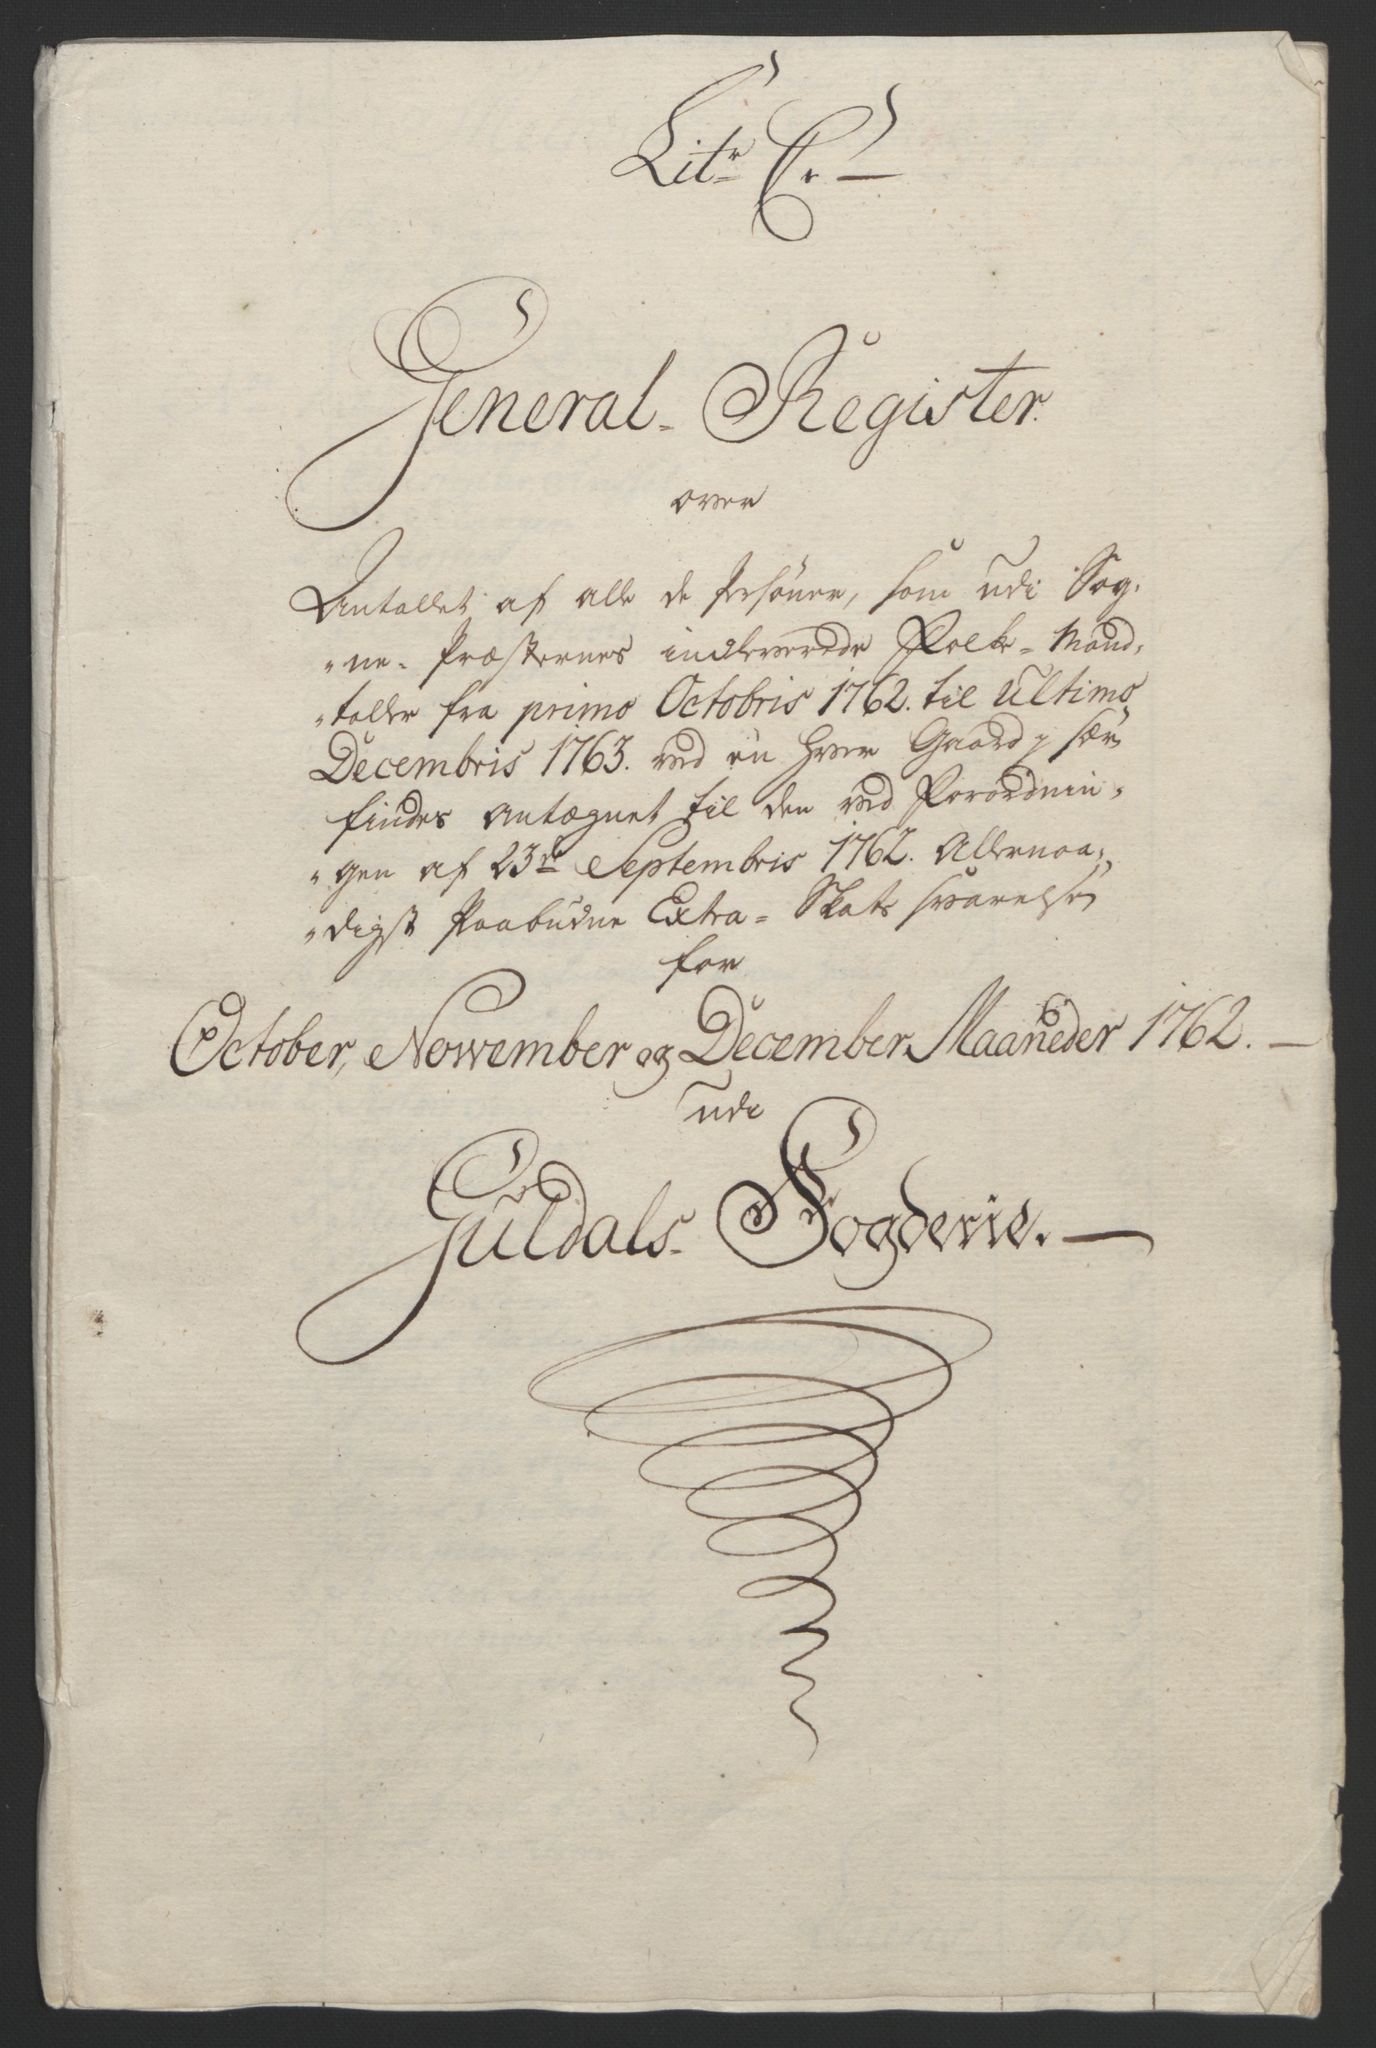 Litr C. —
General- Register
over
Antallet af alle de Persöner, som udi Sog-
"ne- Præsternes indleverede Folke- Mand-
"taller fra primo Octobris 1762. til Ultimo
Decembris 1763. ved en hver Gaard p sær
findes Antægnet til den ved Forordnin-
"gen af 23de Septembris 1762. Allernaa-
"digst Paabudne Extra- Skats svarelse
for
October, Nowember og December Maaneder 1762. —
udi
Guldals- Fogderie. —